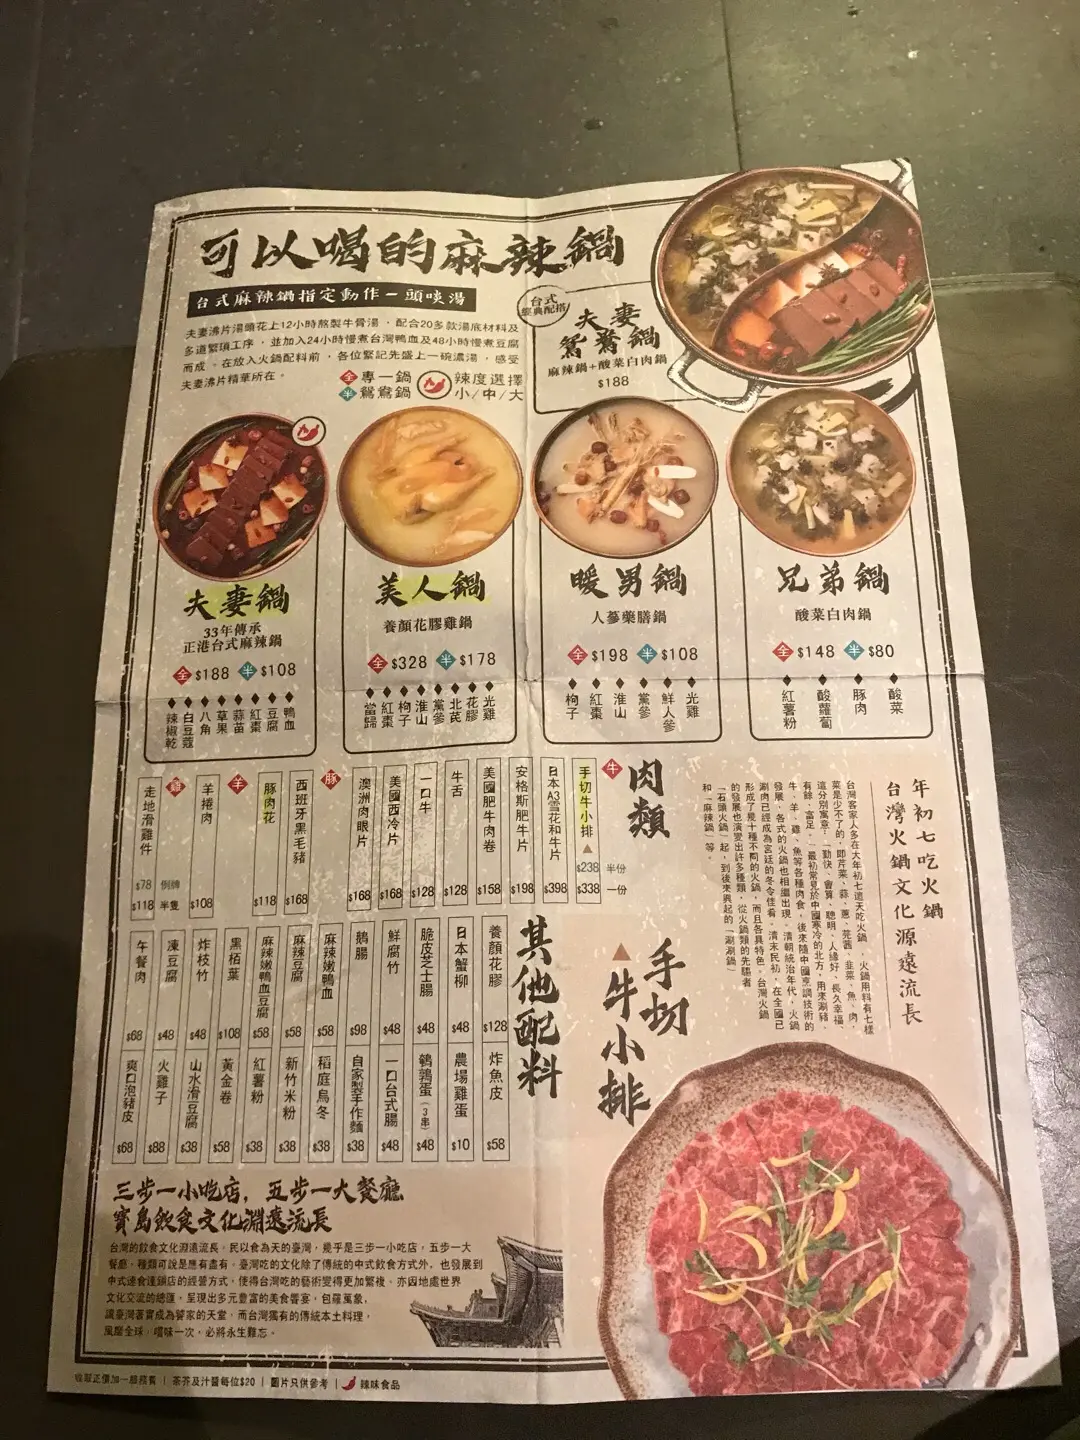 可以喝的麻辣鍋
台式麻辣鍋指定動作－頭啖湯
夫妻沸片湯頭花上12小時熬製牛骨湯，配合20多款湯底材料及
多道繁瑣工序，並加入24小時慢煮台灣鴨血及48小時慢煮豆腐
而成。在放入火鍋配料前，各位緊記先盛上一碗濃湯，感受
夫妻沸片精華所在。
全 專一鍋
半 鴛鴦鍋
辣度選擇
小/中/大
台式
經典配搭
夫妻
鴛鴦鍋
麻辣鍋+酸菜白肉鍋
$188
夫妻鍋
33年傳承
正港台式麻辣鍋
全 $188 半 $108
辣椒乾
白豆蔻
八角
草果
蒜苗
紅棗
豆腐
鴨血
美人鍋
養顏花膠雞鍋
全 $328 半 $178
當歸
紅棗
杞子
淮山
黨參
北芪
花膠
光雞
暖男鍋
人蔘藥膳鍋
全 $198 半 $108
杞子
紅棗
淮山
黨參
鮮人參
光雞
兄弟鍋
酸菜白肉鍋
全 $148 半 $80
紅薯粉
酸蘿蔔
豚肉
酸菜
肉類
牛
手切牛小排▲ $238 半份 $338 一份
日本A3雪花和牛片 $398
安格斯肥牛片 $198
美國肥牛肉卷 $158
牛舌 $128
一口牛 $128
美國西冷片 $168
澳洲肉眼片 $168
豚
西班牙黑毛豬 $168
豚肉花 $118
羊
羊捲肉 $108
雞
走地滑雞件 $78 例牌 $118 半隻
其他配料
養顏花膠 $128
日本蟹柳 $48
脆皮芝士腸 $48
鮮腐竹 $48
鵝腸 $98
麻辣嫩鴨血 $58
麻辣豆腐 $58
麻辣嫩鴨血豆腐 $58
黑栢葉 $108
炸枝竹 $48
凍豆腐 $48
午餐肉 $68
炸魚皮 $58
農場雞蛋 $10
鵪鶉蛋(3串) $48
一口台式腸 $48
自家製手作麵 $38
稻庭烏冬 $38
新竹米粉 $38
紅薯粉 $38
黃金卷 $58
山水滑豆腐 $38
火雞子 $88
爽口泡豬皮 $68
年初七吃火鍋
台灣火鍋文化源遠流長
台灣客家人多在大年初七這天吃火鍋，火鍋用料有七樣
菜是少不了的，即芹菜、蒜、蔥、芫茜、韭菜、魚、肉，
這分別寓意：「勤快、會算、聰明、人緣好、長久幸福、
有餘、富足。」最初常見於中國寒冷的北方，用來涮豬、
牛、羊、雞、魚等各種肉食，後來隨中國烹調技術的
發展，各式的火鍋也相繼出現。清朝統治年代，火鍋
涮肉已經成為宮廷的冬令佳肴。清末民初，在全國已
形成了幾十種不同的火鍋，而且各具特色。台灣火鍋
的發展也演變出許多種類，從火鍋類的先驅者
「石頭火鍋」起，到後來興起的「涮涮鍋」
和「麻辣鍋」等。
手切
▲牛小排
三步一小吃店，五步一大餐廳
寶島飲食文化淵遠流長
台灣的飲食文化淵遠流長，民以食為天的臺灣，幾乎是三步一小吃店，五步一大
餐廳，種類可說是應有盡有。臺灣吃的文化除了傳統的中式飲食方式外，也發展到
中式速食連鎖店的經營方式，使得台灣吃的藝術變得更加繁複，亦因地處世界
文化交流的總匯，呈現出多元豐富的美食饗宴，包羅萬象，
讓臺灣著實成為饕家的天堂，而台灣獨有的傳統本土料理，
風靡全球，嚐味一次，必將永生難忘。
收取正價加一服務費 | 茶芥及汁醬每位$20 | 圖片只供參考 | 辣味食品